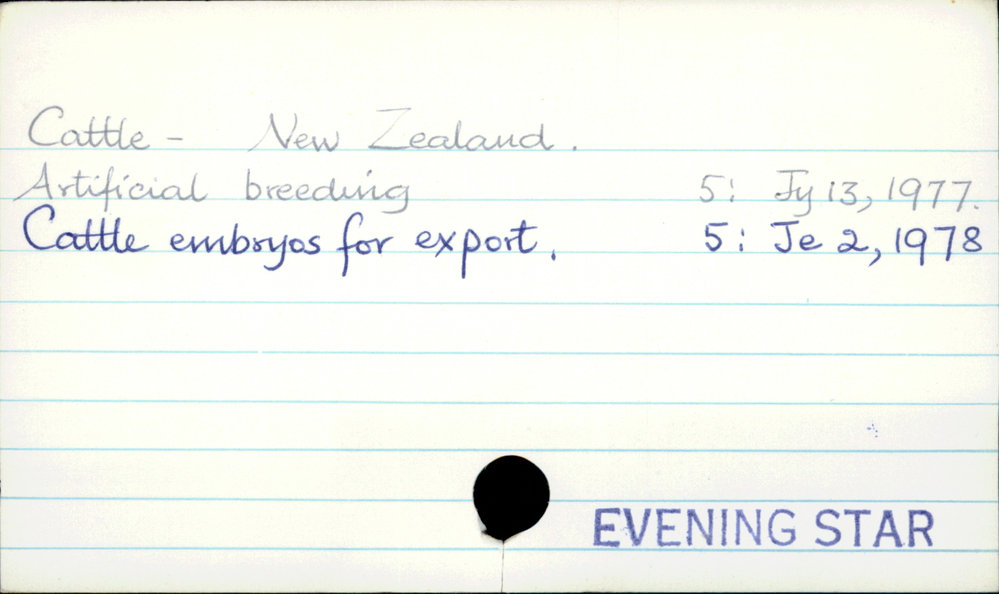 Cattle - New Zealand.
Artificial breeding 5: Jy 13, 1977.
Cattle embryos for export. 5: Je 2, 1978
EVENING STAR